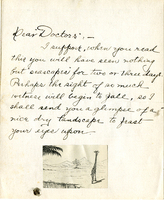 Dear Doctors: —
I suppose, when you read
this you will have seen nothing
but seascapes for two or three days.
Perhaps the sight of so much
wetness will begin to pall, so I
shall send you a glimpse of a
nice dry landscape to feast
your eyes upon—